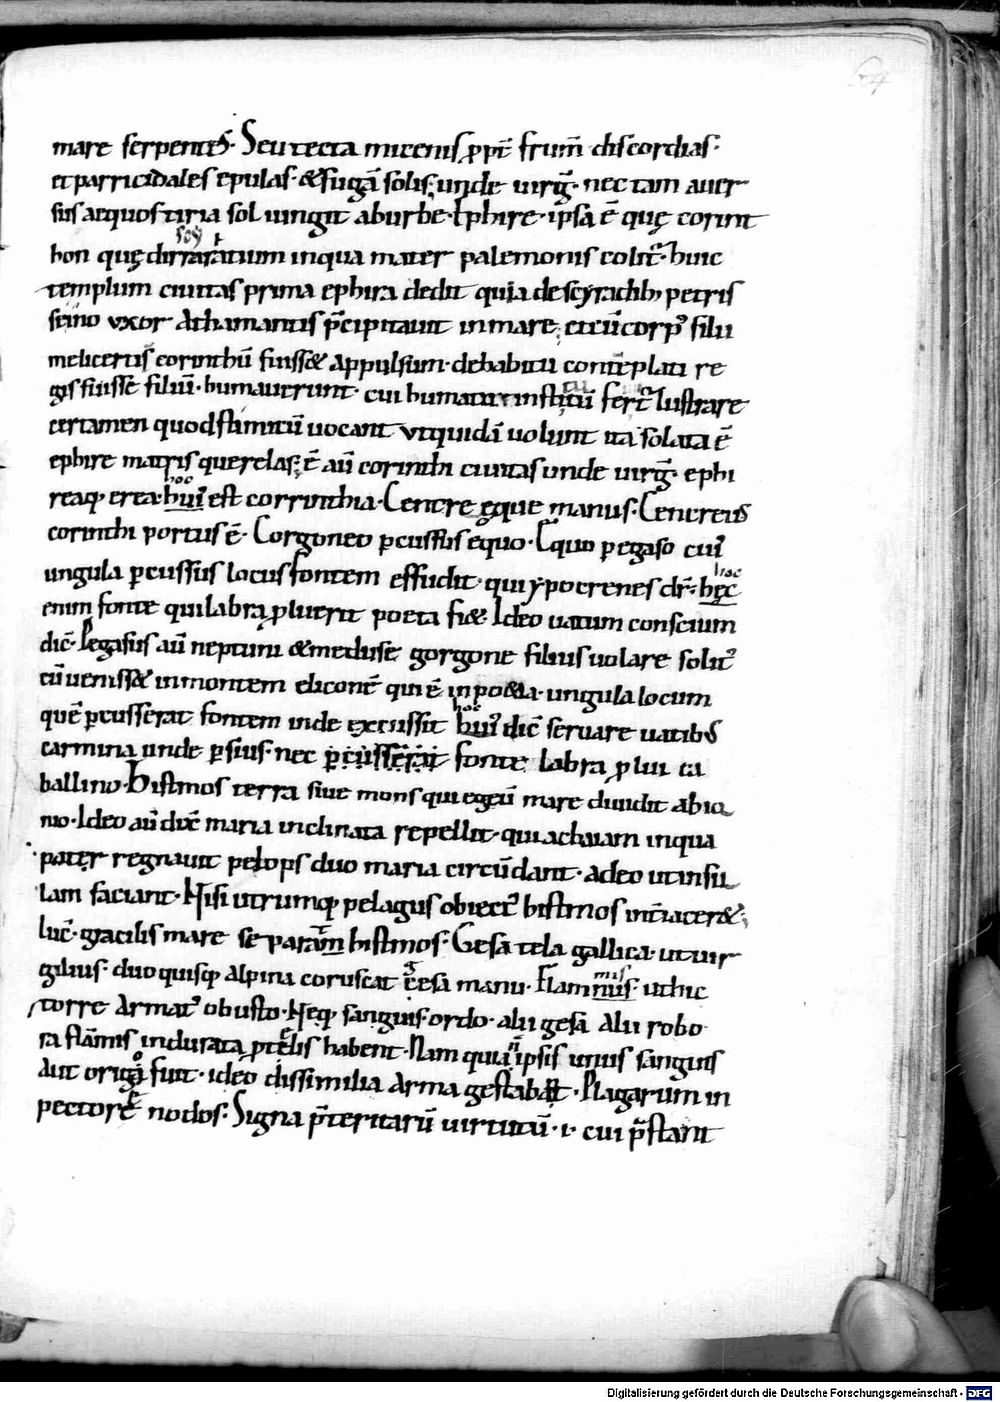 64
mare serpentes. Seu tecta micenis ꝓpt̄ frum̄ discordias.
et parricidales epulas. & fugā solis. unde uirḡ. nec tam auer
sus aequos tiria sol iungit ab urbe. Ephire. ipsa ē quę corint
hon quę inqua mater palemonis colit᷑. hinc
templum ciuitas prima ephira dedit quia de scyrachiis petris
se ino uxor Athamantis p̄cipitauit in mare. et cū corpꝰ filii
melicertis corinthū fuiss& appulsum. de habitu contēplati re
gis fuisse filiū. humauerunt. cui humatur institutū fert᷑ lustrare
certamen quod stimiū uocant ut quidā uolunt ita solata ē
ephire matris querelas. ē aū corinthi ciuitas unde uirḡ. ephi
reaq; erea. huiꝰ hoc est corrinthia. Cencre ęque manus. Cencreis
corinthi portus ē. Gorgoneo ꝑcussus equo. Equo pegaso cuiꝰ
ungula ꝑcussus locus fontem effudit. qui ypocrenes dr̄. hęc hoc
enim fonte qui labra ꝓluerit poeta fi&. Ideo uatum conscium
dic̄. Pegasus aū neptuni & meduse gorgone filius uolare solitꝰ
cū ueniss& in montem eliconē qui ē in po&ia. ungula locum
quē ꝑcusserat fontem inde excussit huiꝰ hoc dic̄ seruare uatibꝰ
carmina unde ꝑsius. nec ꝑcusserat fonte labra ꝓlui ca
ballino. Histmos terra siue mons qui egeū mare diuidit ab io
nio. Ideo aū duc̄ maria inclinata repellit. qui achaiam inqua
pater regnauit pelops duo maria circūdant. adeo ut insu
lam faciant. Nisi utrumq; pelagus obiectꝰ histmos int̄iacer&.
luc̄. gracilis mare se paran̄ histmos. Gesa tela gallica. ut uir
gilius. duo quisq; alpina coruscat gesa manu. Flammis ut hic
torre Armatꝰ obusto. Neq; sanguis ordo. alii gesa Alii robo
ra flāmis indurata ꝓtelis habent. Nam quia ipsis unus sanguis
Aut origo fuit. ideo dissimilia Arma gestabant. Plagarum in
pectore nodos. Signa p̄teritarū uirtutū. i. cui p̄stant
Digitalisierung gefördert durch die Deutsche Forschungsgemeinschaft - DFG